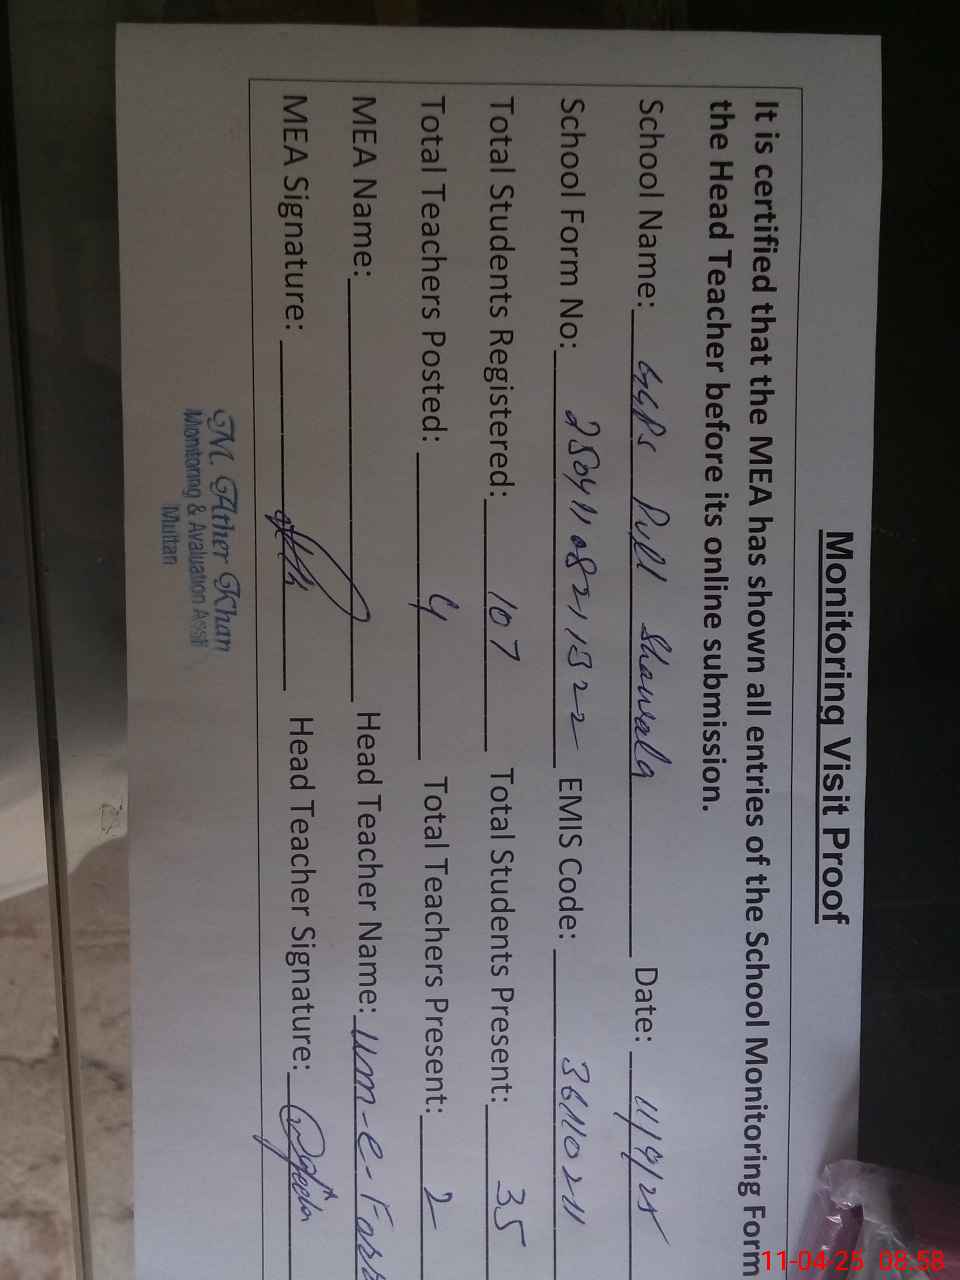 Monitoring Visit Proof
It is certified that the MEA has shown all entries of the School Monitoring Form
the Head Teacher before its online submission.
School Name: GGPS Pull Shawala Date: 11/4/25
School Form No: EMIS Code: 36110211
Total Students Registered: 107 Total Students Present: 35
Total Teachers Posted: 4 Total Teachers Present: 2
MEA Name: Head Teacher Name: Um-e-
MEA Signature: Head Teacher Signature:
M. Ather Khan
Monitoring & Avaluation Asstt
Multan
11-04-25 08:58